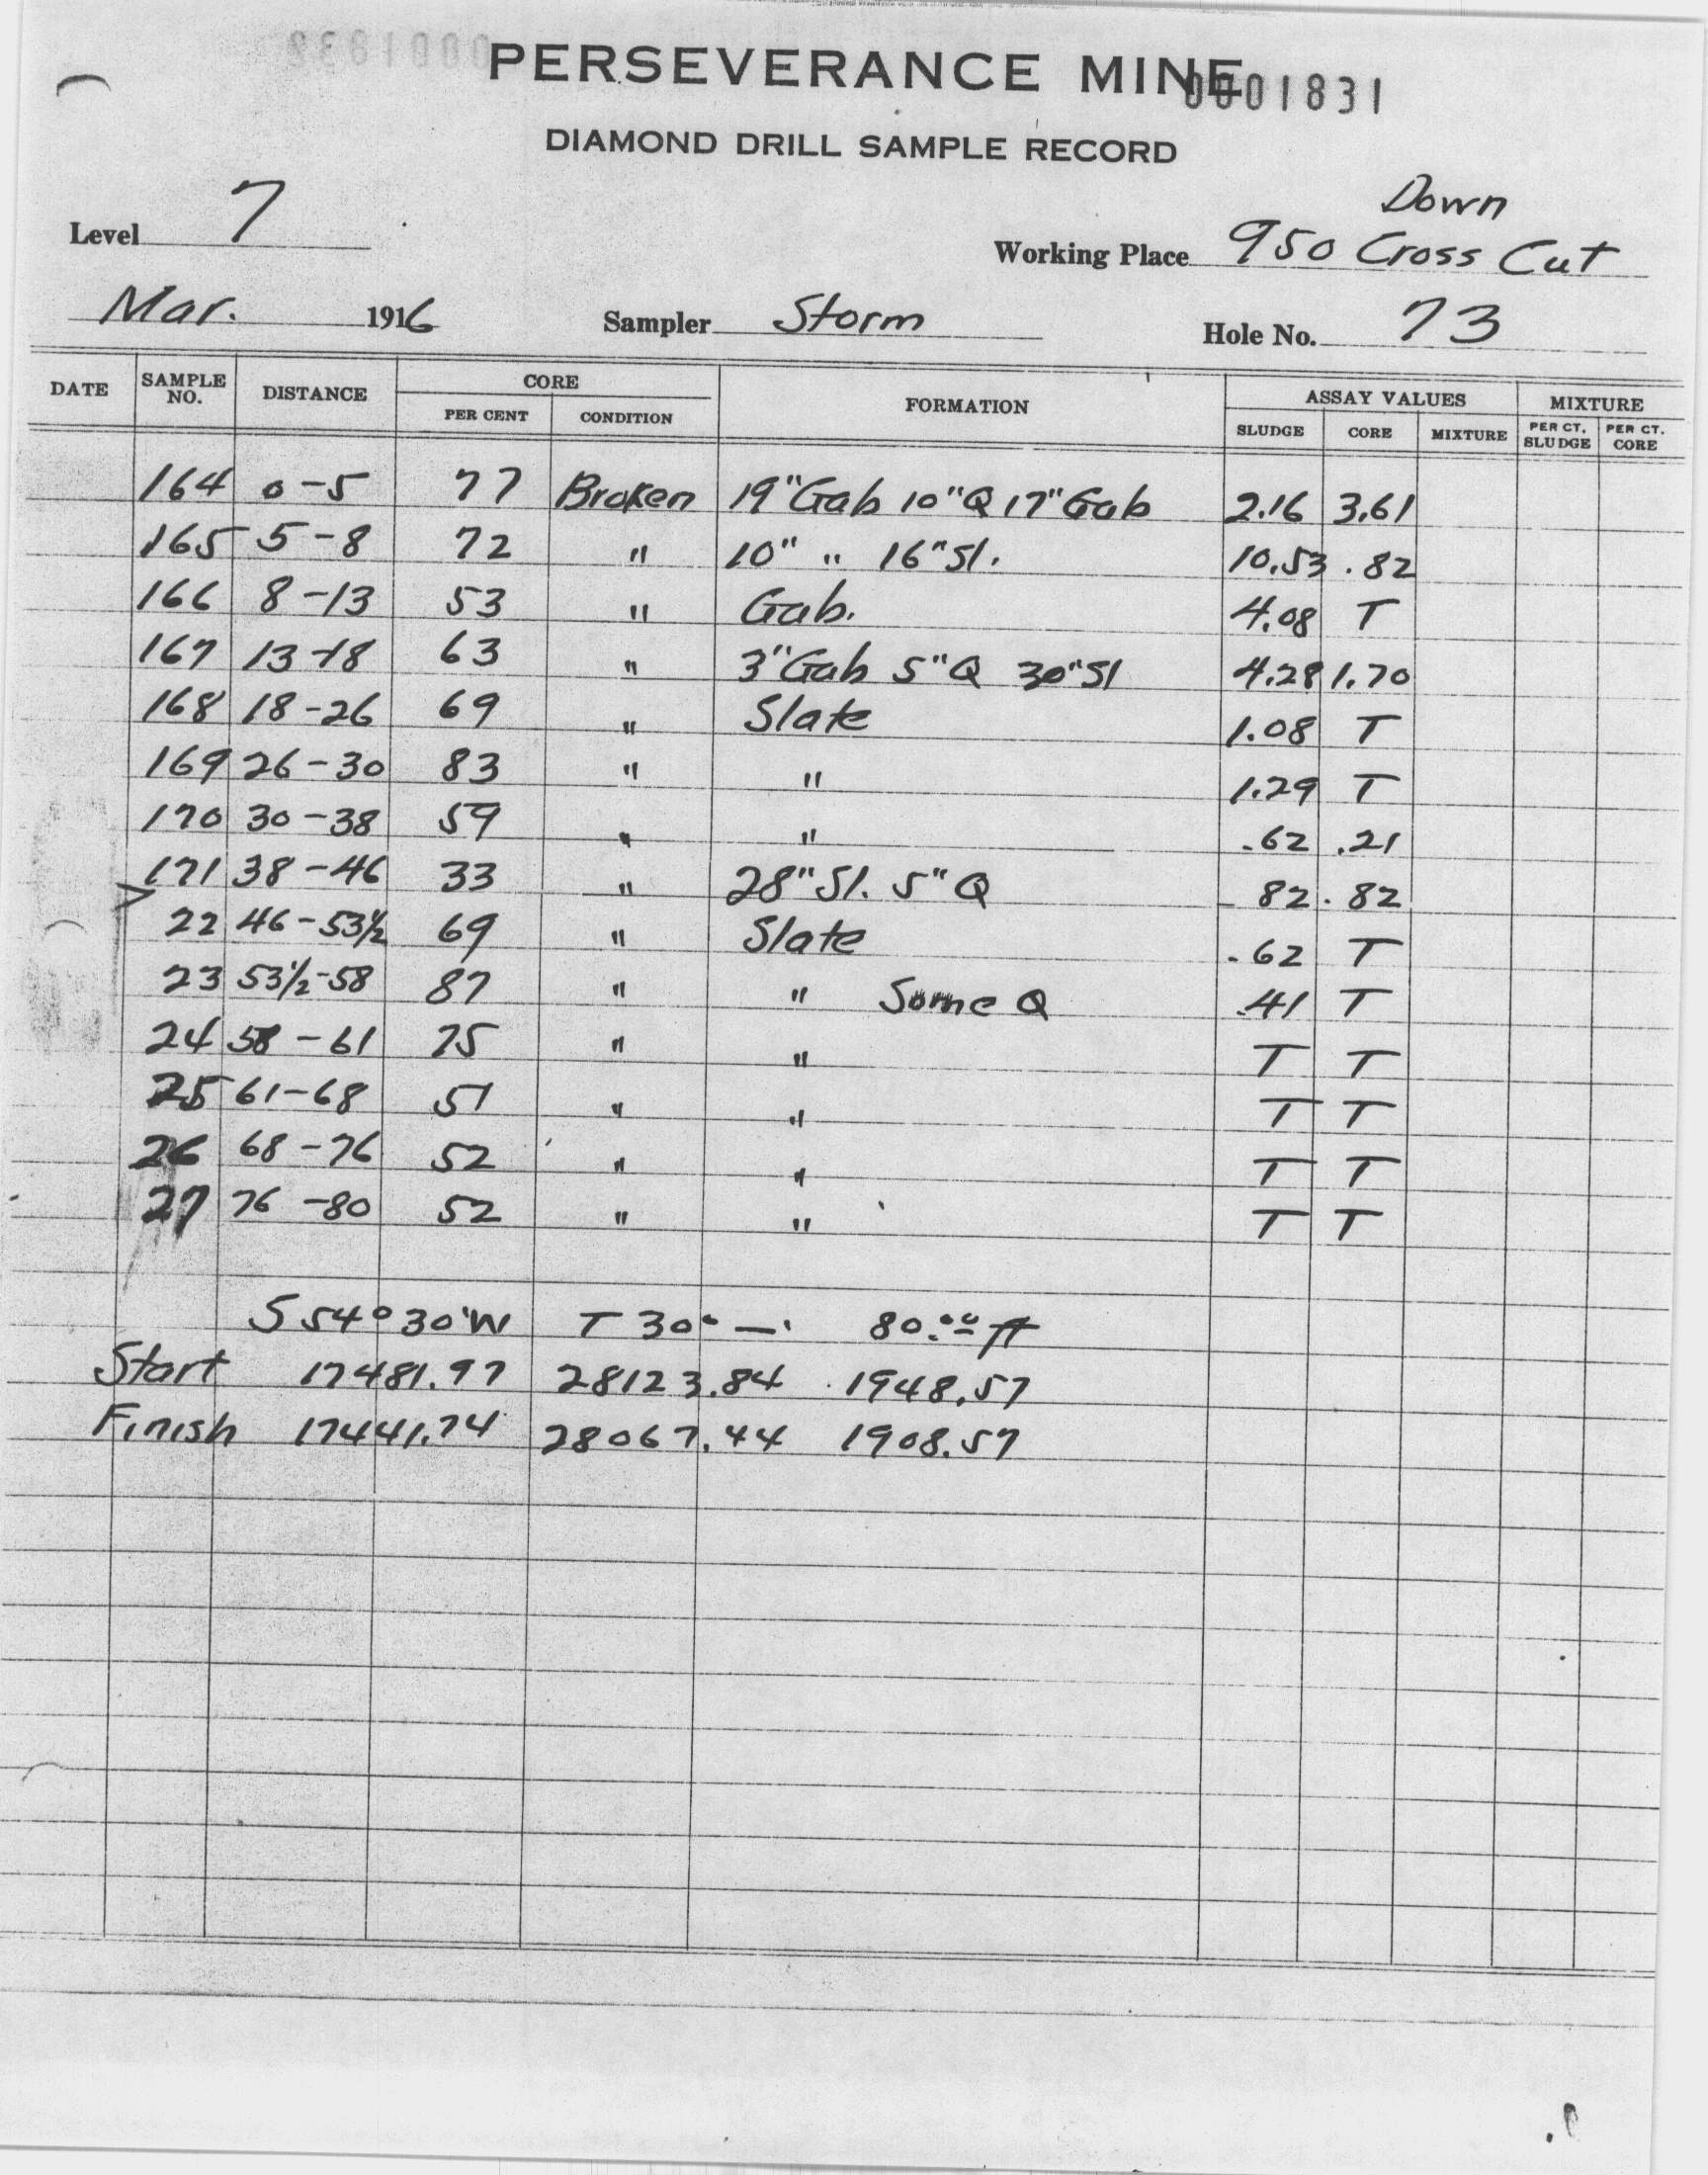 0001832
PERSEVERANCE MINE
0001831
DIAMOND DRILL SAMPLE RECORD
Down
Level 7 Working Place 950 Cross Cut
Mar. 1916 Sampler Storm Hole No. 73
DATE SAMPLE NO. DISTANCE CORE FORMATION ASSAY VALUES MIXTURE
PER CENT CONDITION SLUDGE CORE MIXTURE PER CT. SLUDGE PER CT. CORE
164 0-5 77 Broken 19" Gab 10" Q 17" Gab 2.16 3.61
165 5-8 72 " 10" " 16" Sl. 10.53 .82
166 8-13 53 " Gab. 4.08 T
167 13-18 63 " 3" Gab 5" Q 30" Sl 4.28 1.70
168 18-26 69 " Slate 1.08 T
169 26-30 83 " " 1.29 T
170 30-38 59 " " .62 .21
171 38-46 33 " 28" Sl. 5" Q .82 .82
> 22 46-53½ 69 " Slate .62 T
23 53½-58 87 " " Some Q .41 T
24 58-61 75 " " T T
25 61-68 51 " " T T
26 68-76 52 " " T T
27 76-80 52 " " T T
S 54° 30' W T 30° —' 80.00 ft
Start 17481.97 28123.84 1948.57
Finish 17441.74 28067.44 1908.57